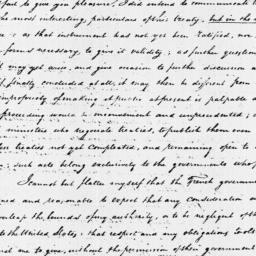 had to give you pleasure, I did intend to communicate t
the most interesting, particulars of this treaty, but in the m
e : as that instrument has not yet been ratified, nor
forms necessary, to give it validity; as further question
it may yet arise, and give occasion to further discussion a
if finally concluded at all, it may then be different from
impropriety of making it public at present is palpable
proceeding would be inconvenient and unprecedented; o
ministers who negociate treaties, to publish them even
treaties not yet compleated, and remaining open to
, such acts belong exclusively to the governments who
I cannot but flatter myself that the French governme
and reasonable to expect that any consideration o
overleap the bounds of my authority, or to be negligent of th
to the United States, that respect and any obligations to
me to give, without the permission of their government